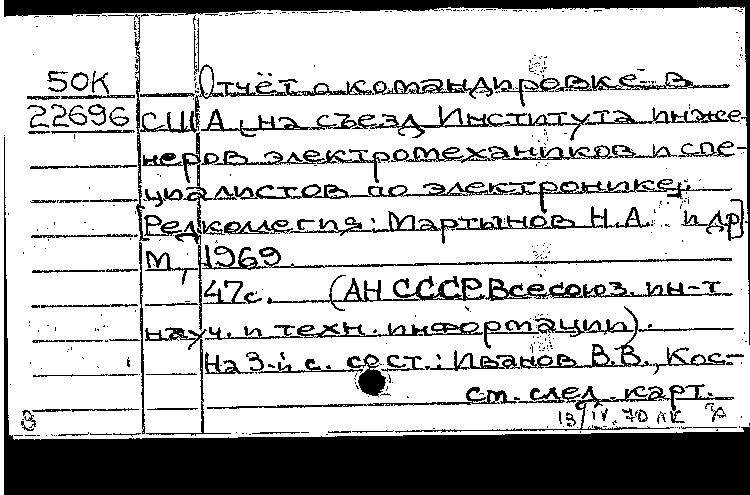 50К Отчёт о командировке в
22696 США на съезд Института инже-
неров электромехаников и спе-
циалистов по электронике.
[Редколлегия: Мартынов Н.А. и др]
М, 1969.
47с. (АН СССР. Всесоюз. ин-т
науч. и техн. информации).
На 3-й с. сост.: Иванов В.В., Кос-
см. след. карт.
13/IV.70